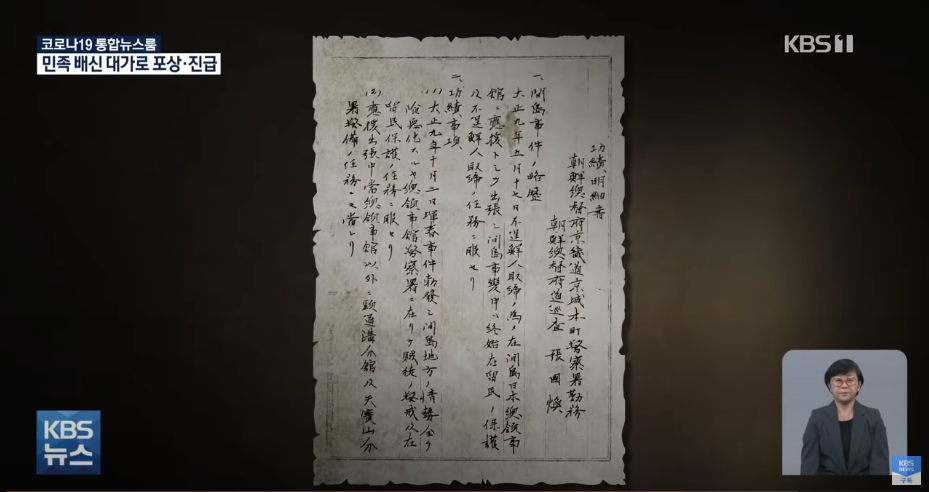 코로나19 통합뉴스룸
민족 배신 대가로 포상·진급
KBS1
功績明細書
朝鮮總督府京畿道京城本町警察署勤務
朝鮮總督府道巡査 張國煥
一、間島事件ノ略歴
大正九年五月十七日不逞鮮人取締ノ爲メ在間島日本總領事
館ニ應援トシテ出張シ間島事變中ハ終始在留民ノ保護
及不逞鮮人取締ノ任務ニ服セリ
二、功績事項
(1)大正九年十月二日琿春事件勃發シ間島地方ノ情勢
險惡化スルヤ總領事館警察署ニ在リテ賊徒ノ警戒及在
留民保護ノ任務ニ服セリ
(2)應援出張中當總領事館以外ニ頭道溝分館及天寶山分
署警備ノ任務ニモ當レリ
KBS
뉴스
KBS
NEWS
구독